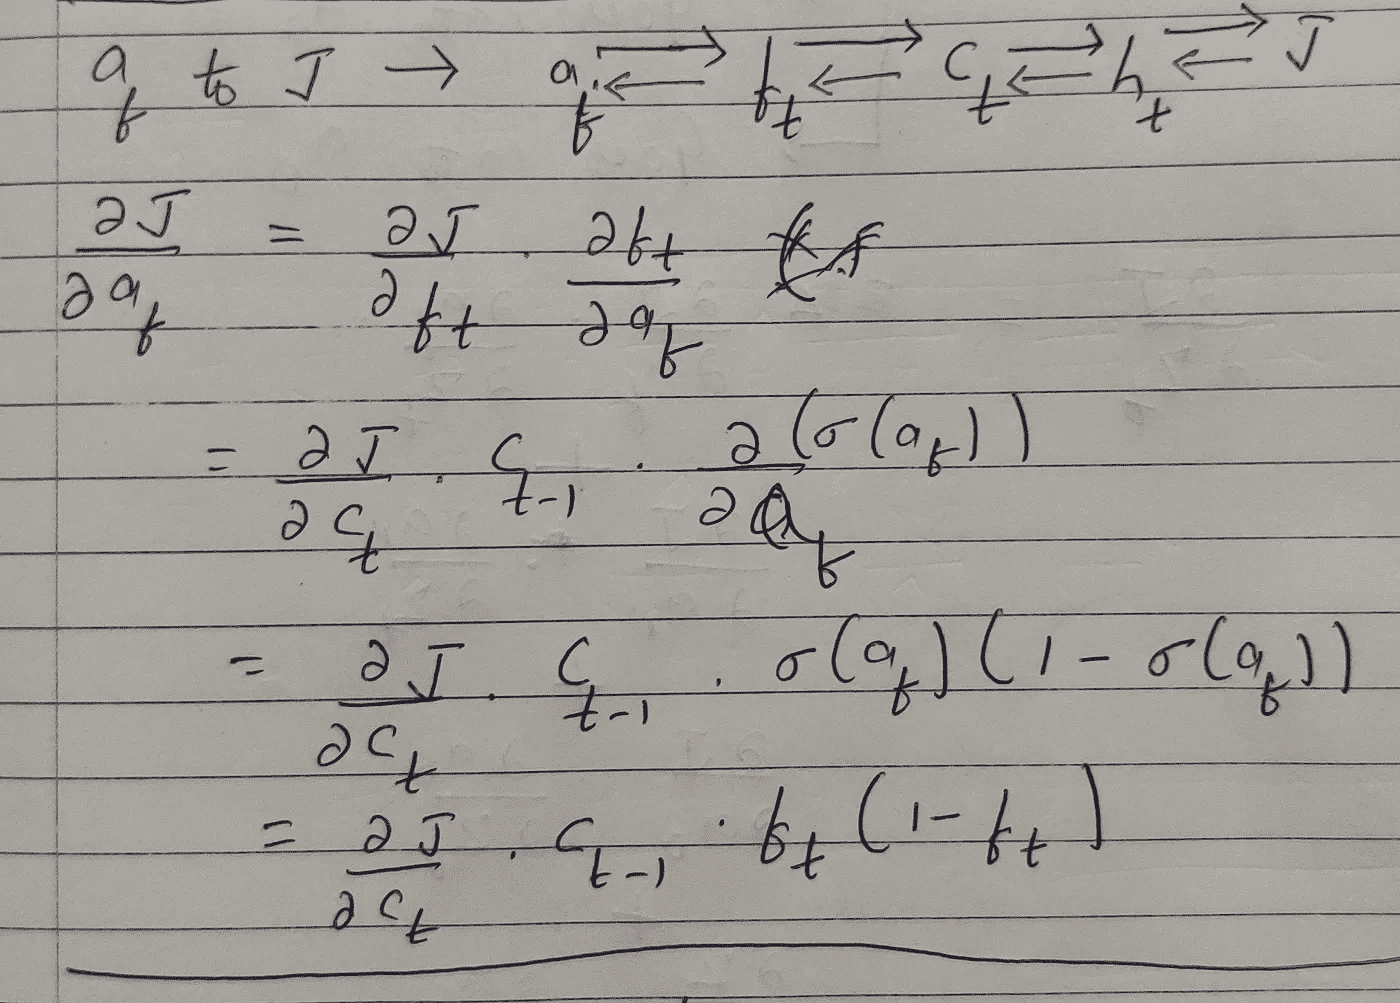 a_f to J → a_f ⇄ f_t ⇄ C_t ⇄ h_t ⇄ J
∂J/∂a_f = ∂J/∂f_t · ∂f_t/∂a_f
= ∂J/∂C_t · C_{t-1} · ∂(σ(a_f))/∂a_f
= ∂J/∂C_t · C_{t-1} · σ(a_f)(1 - σ(a_f))
= ∂J/∂C_t · C_{t-1} · f_t(1 - f_t)